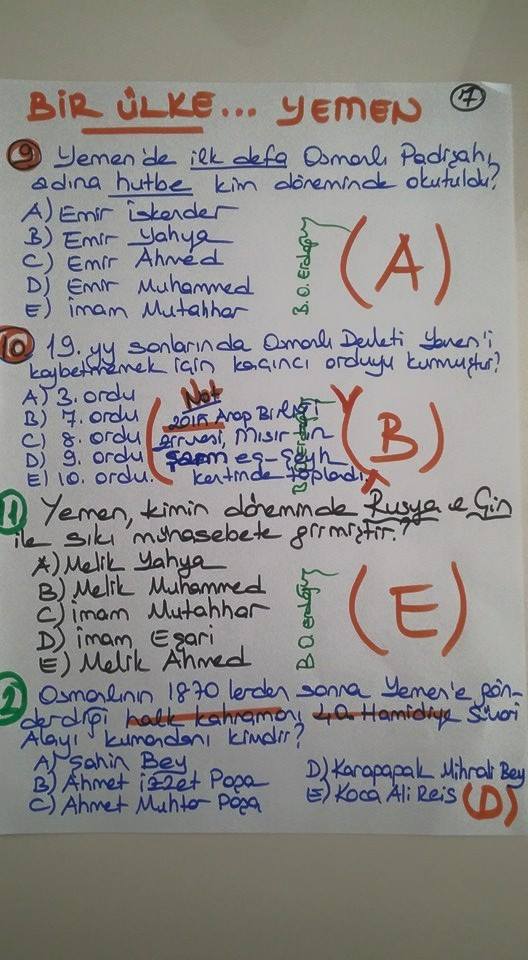 BİR ÜLKE... YEMEN
7
9 Yemen'de ilk defa Osmanlı Padişahı
adına hutbe kim döneminde okutuldu?
A) Emir İskender
B) Emir Yahya
C) Emir Ahmed
D) Emir Muhammed
E) İmam Mutahhar
B.O. Erdoğan
(A)
10 19. yy sonlarında Osmanlı Devleti Yemen'i
kaybetmemek için kaçıncı orduyu kurmuştur?
A) 3. ordu
B) 7. ordu
C) 8. ordu
D) 9. ordu
E) 10. ordu.
(Not
2015 Arap Birliği
zirvesi, Mısır'ın
Şarm eş-Şeyh
kentinde toplandı.)
(B)
11 Yemen, kimin döneminde Rusya ve Çin
ile sıkı münasebete girmiştir?
A) Melik Yahya
B) Melik Muhammed
C) İmam Mutahhar
D) İmam Eşari
E) Melik Ahmed
B.O. Erdoğan
(E)
2 Osmanlının 1870 lerden sonra Yemen'e gön-
derdiği halk kahramanı 40. Hamidiye Süvari
Alayı kumandanı kimdir?
A) Şahin Bey
B) Ahmet İzzet Paşa
C) Ahmet Muhtar Paşa
D) Karapapak Mihrali Bey
E) Koca Ali Reis
(D)